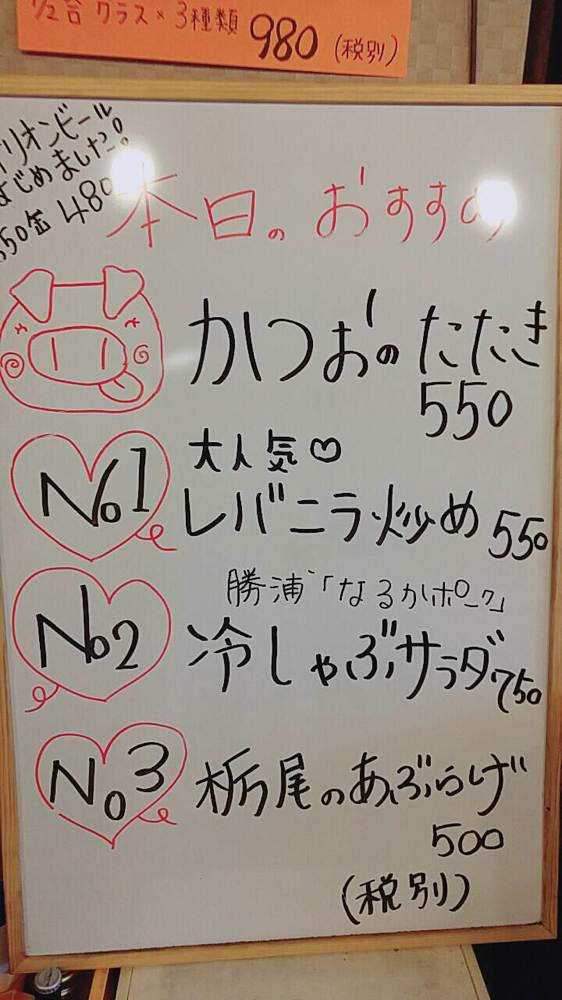 1/2合 グラス×3種類 980 (税別)
リオンビール
はじめました!
350缶 480
本日のおすすめ
かつおのたたき
550
No1
大人気♡
レバニラ炒め 550
No2
勝浦「なるかポーク」
冷しゃぶサラダ 750
No3
栃尾のあぶらげ
500
(税別)